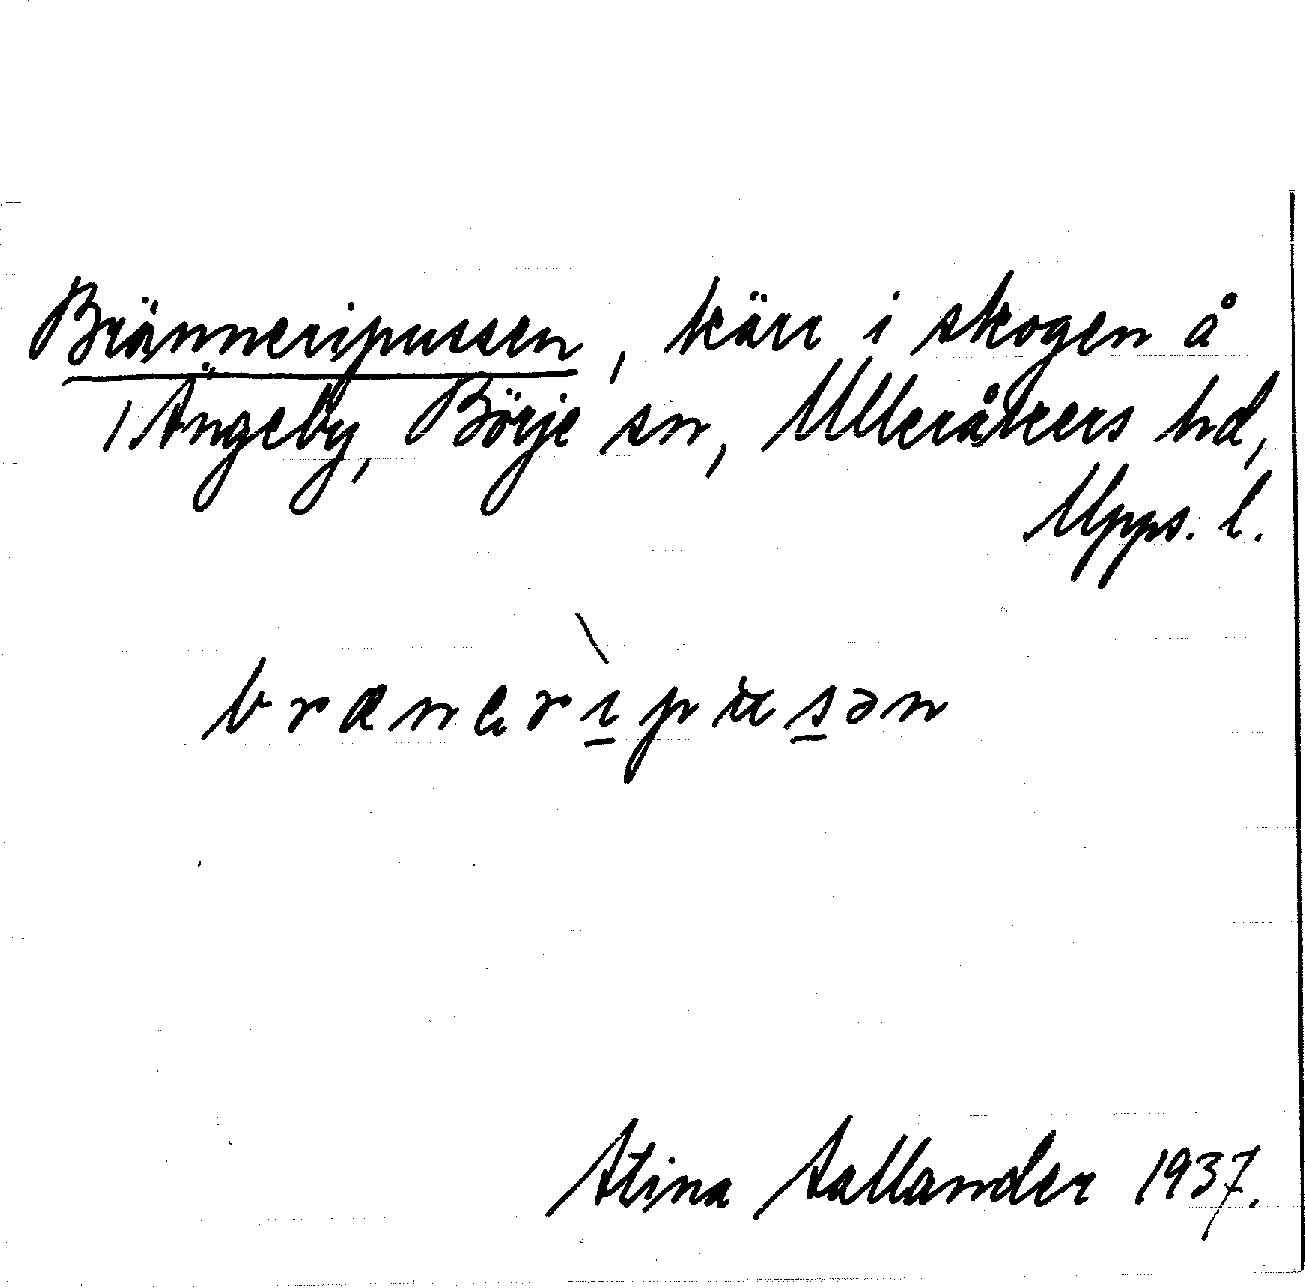 Bränneripussen, kärr i skogen å
1 Ängeby, Börje sn, Ulleråkers hd,
Upps. l.
brænerìpusən
Stina Sallander 1937.